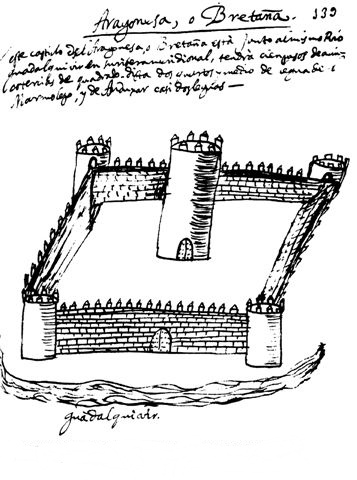 Aragonesa, o Bretaña. 139
este castillo del Aragonesa, o Bretaña está junto al mismo Rio
guadalquivir en su rivera meridional, tendrá cien pasos de
de quadrado. dista dos quartos y medio de legua de
Marmolejo, y de Andujar casi dos leguas —
guadalquivir.